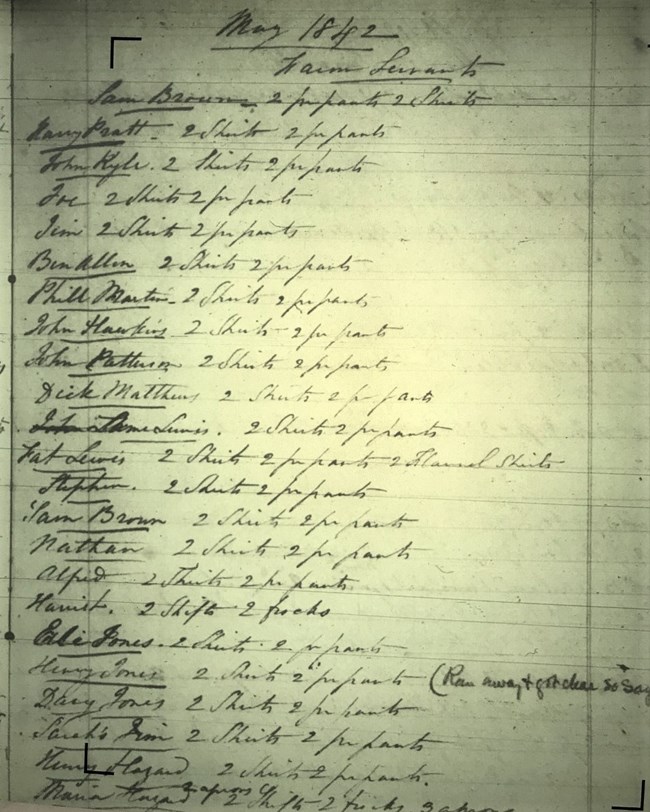 May 1842
Farm Servants
Sam Brown 2 pr pants 2 Shirts
Harry Pratt - 2 Shirts 2 pr pants
John Kyle. 2 Shirts 2 pr pants
Joe 2 Shirts 2 pr pants
Jim 2 Shirts 2 pr pants
Ben Allen 2 Shirts 2 pr pants
Phill Martin - 2 Shirts 2 pr pants
John Hawkins 2 Shirts - 2 pr pants
John Patterson 2 Shirts 2 pr pants
Dick Matthews 2 Shirts 2 pr pants
Lewis. 2 Shirts 2 pr pants
Fat Lewis 2 Shirts 2 pr pants 2 Flannel Shirts
Stephen. 2 Shirts 2 pr pants
Sam Brown 2 Shirts 2 pr pants
Nathan 2 Shirts 2 pr pants
Alfred 2 Shirts 2 pr pants
Harriet. 2 Shifts 2 frocks
Eli Jones. 2 Shirts. 2 pr pants
Henry Jones 2 Shirts 2 pr pants (Ran away & got clear so say
Davy Jones 2 Shirts 2 pr pants
Sarah's Jim 2 Shirts 2 pr pants
Henry Hazard 2 Shirts 2 pr pants.
Maria Hazard 2 aprons 2 Shifts 2 frocks 3 aprons